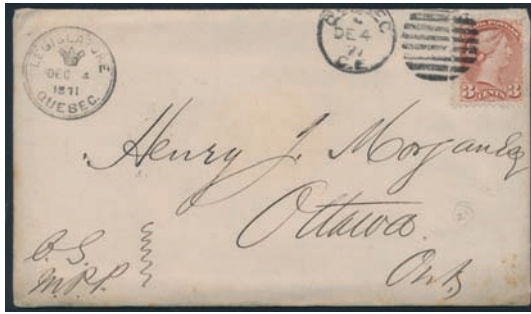 LEGISLATURE
DEC 4
1871
QUEBEC.
QUEBEC
DE 4
71
C.E.
3 CENTS 3
Henry J. Morgan Esq
Ottawa.
Ont
O.S.
M.P.P.